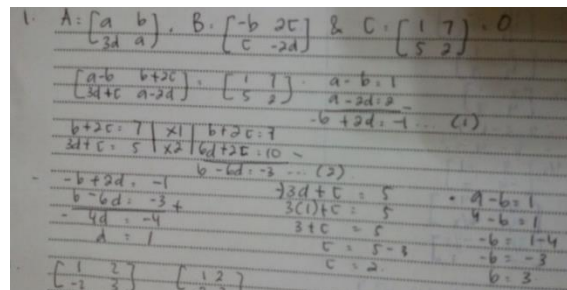 1. A = [a b / 3d a] , B = [-b 2c / c -2d] & C = [1 7 / 5 2] = 0
[a-b b+2c / 3d+c a-2d] = [1 7 / 5 2] . a - b = 1
a - 2d = 2 -
-b + 2d = -1 ... (1)
b + 2c = 7 | x1 | b + 2c = 7
3d + c = 5 | x2 | 6d + 2c = 10 -
b - 6d = -3 ... (2)
- -b + 2d = -1
b - 6d = -3 +
- 4d = -4
d = 1
→ 3d + c = 5
3(1) + c = 5
3 + c = 5
c = 5 - 3
c = 2
• a - b = 1
4 - b = 1
-b = 1 - 4
-b = -3
b = 3
[1 2 / -2 3] [1 2